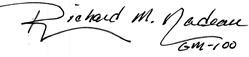 Richard M. Nadeau
GM-100